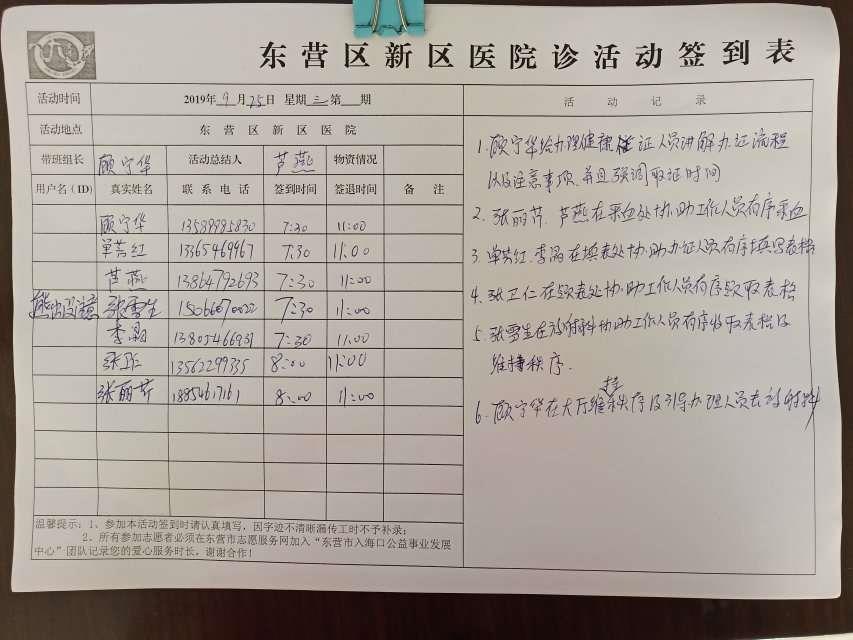 东营区新区医院诊活动签到表
活动时间 2019年9月25日 星期三第 期 活动记录
活动地点 东营区新区医院
带班组长 顾宁华 活动总结人 芦燕 物资情况
用户名(ID) 真实姓名 联系电话 签到时间 签退时间 备注
顾宁华 13589985830 7:30 11:00
单芸红 13365469967 7:30 11:00
芦燕 13864792693 7:30 11:00
熊出没注意 张雪生 15066070022 7:30 11:00
李 13805466931 7:30 11:00
张卫仁 13562299335 8:00 11:00
张丽芹 18854617161 8:00 11:00
1. 顾宁华给办理健康证人员讲解办证流程
以及注意事项,并且强调取证时间
2. 张丽芹、芦燕在采血处协助工作人员有序采血
3. 单芸红、李 在填表处协助办证人员有序填写表格
4. 张卫仁在领表处协助工作人员有序领取表格
5. 张雪生在放射科协助工作人员有序收取表格及
维持秩序.
6. 顾宁华在大厅维持秩序及引导办理人员去放射科
温馨提示:1、参加本活动签到时请认真填写,因字迹不清晰漏传工时不予补录;
2、所有参加志愿者必须在东营市志愿服务网加入“东营市入海口公益事业发展
中心”团队记录您的爱心服务时长,谢谢合作!